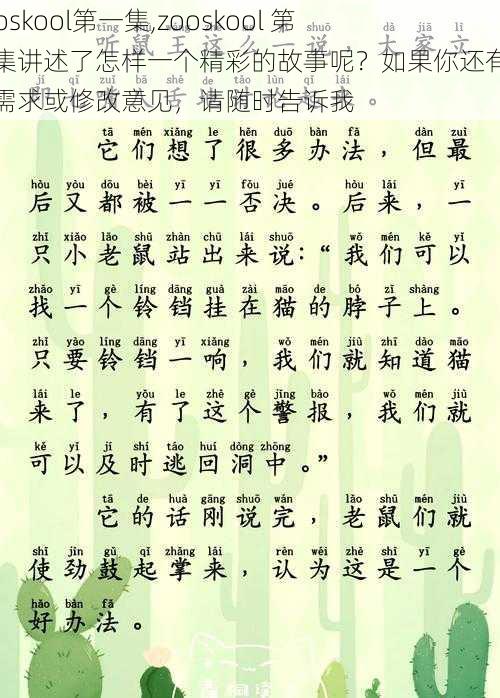 oskool第一集,zooskool 第
集讲述了怎样一个精彩的故事呢？如果你还有
需求或修改意见，请随时告诉我
tīng shǔ wáng zhè me yì shuō dà jiā lì
听鼠王这么一说，大家立
tā mén xiǎng le hěn duō bàn fǎ dàn zuì
它们想了很多办法，但最
hòu yòu dōu bèi yī yī fǒu jué hòu lái yī
后又都被一一否决。后来，一
zhī xiǎo lǎo shǔ zhàn chū lái shuō wǒ mén kě yǐ
只小老鼠站出来说：“我们可以
zhǎo yī gè líng dāng guà zài māo de bó zi shàng
找一个铃铛挂在猫的脖子上。
zhǐ yào líng dāng yī xiǎng wǒ mén jiù zhī dào māo
只要铃铛一响，我们就知道猫
lái le yǒu le zhè gè jǐng bào wǒ mén jiù
来了，有了这个警报，我们就
kě yǐ jí shí táo huí dòng zhōng
可以及时逃回洞中。”
tā de huà gāng shuō wán lǎo shǔ mén jiù
它的话刚说完，老鼠们就
shǐ jìn gǔ qǐ zhǎng lái rèn wéi zhè shì yī gè
使劲鼓起掌来，认为这是一个
hǎo bàn fǎ
好办法。